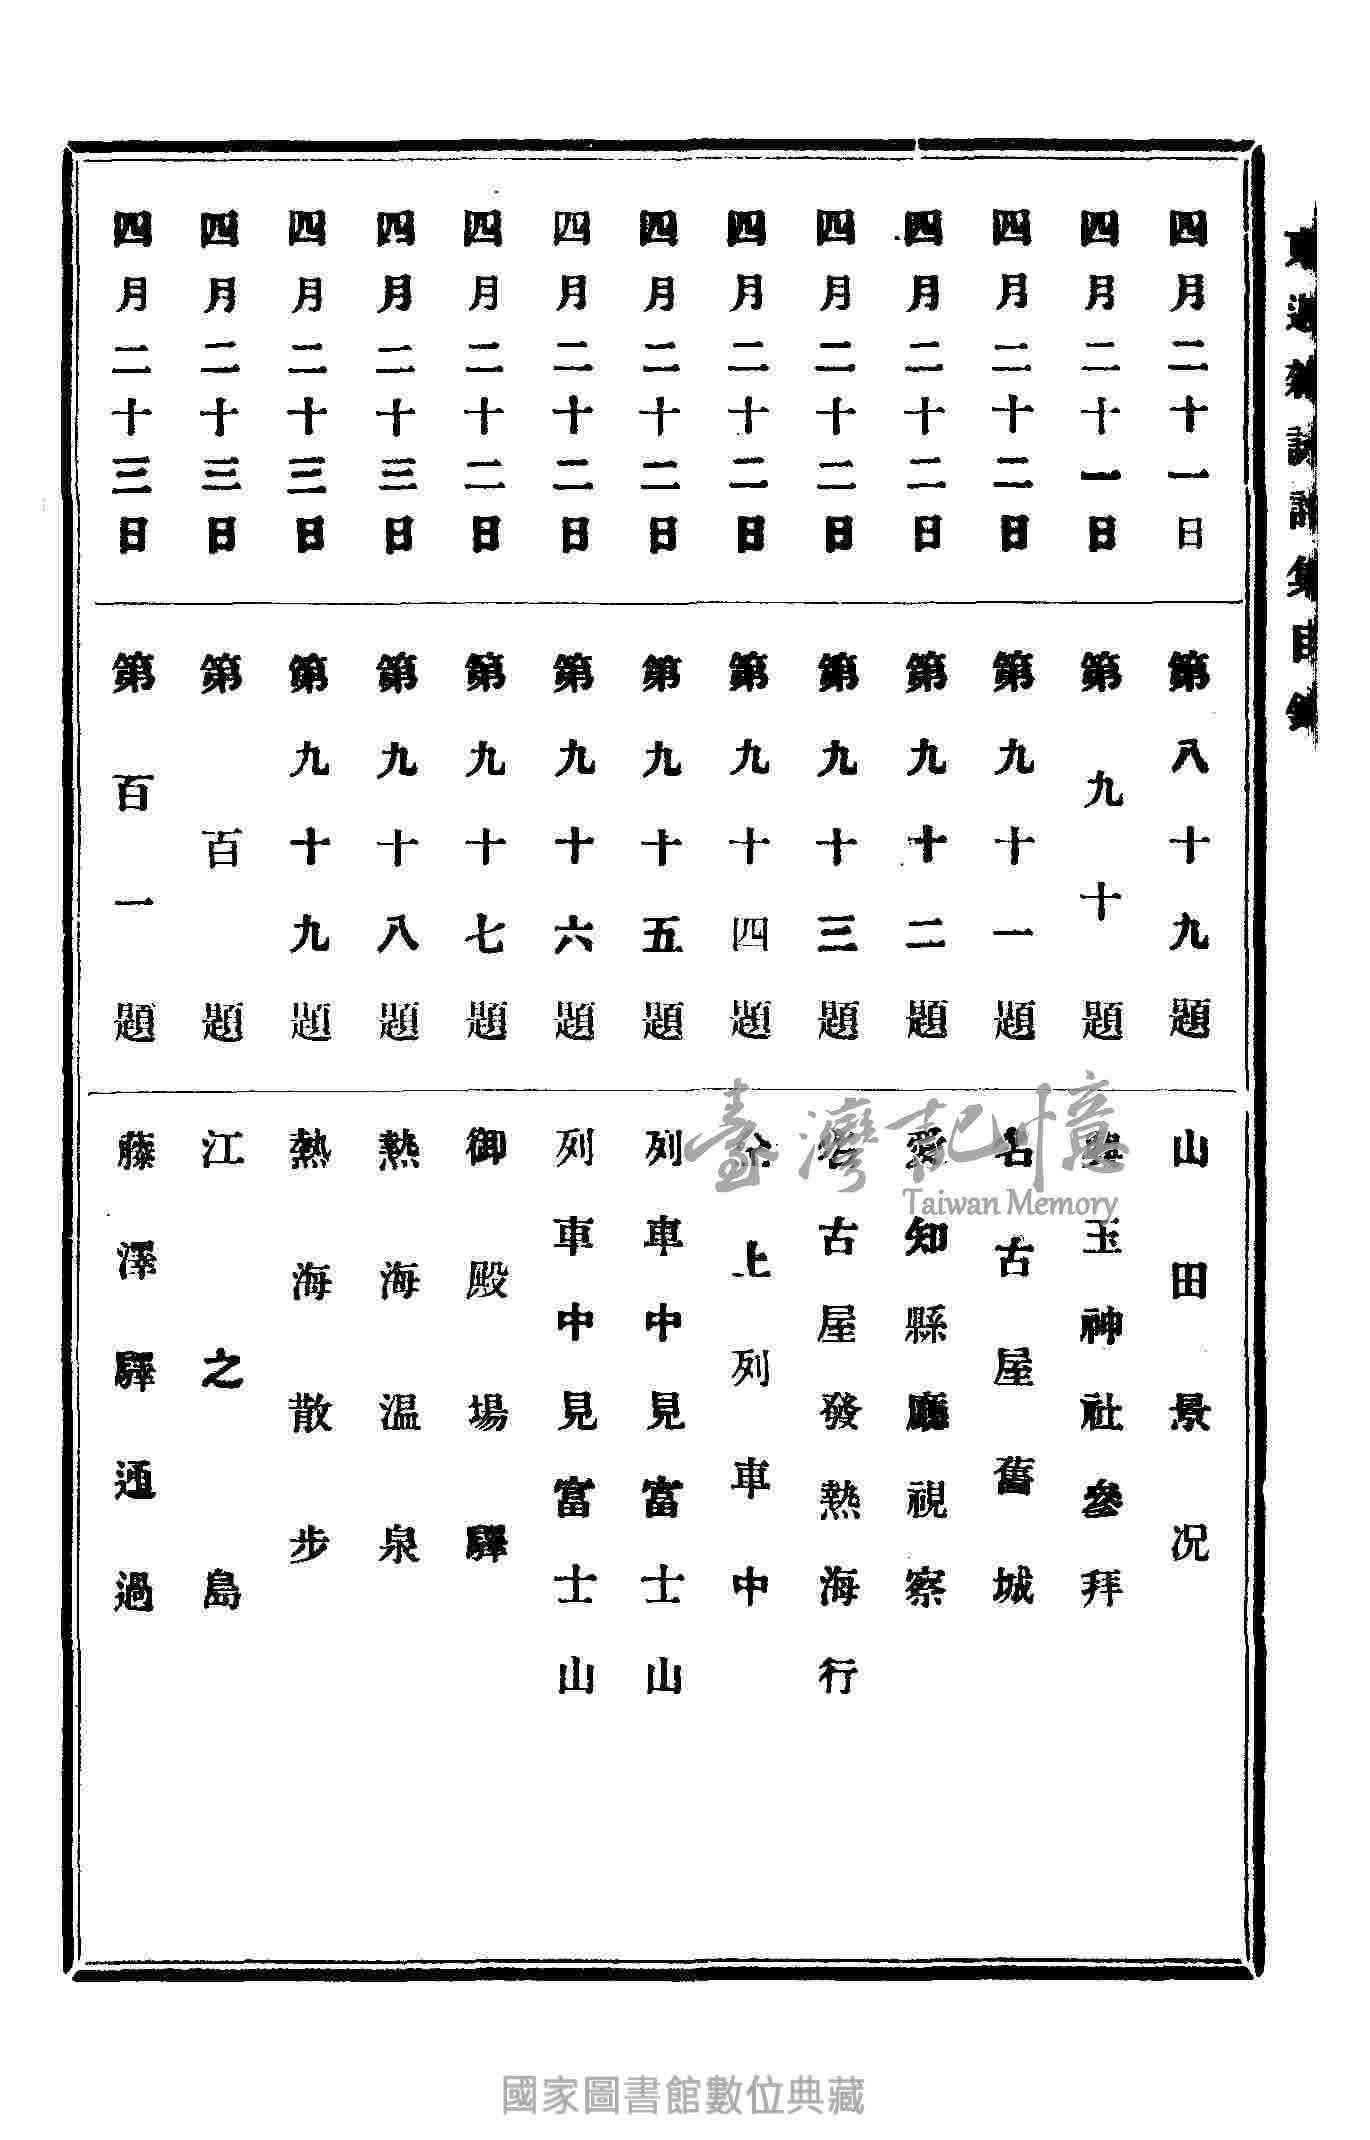 東遊雜詠詩集目錄
四月二十一日 第八十九題 山田景况
四月二十一日 第九十題 玉神社參拜
四月二十二日 第九十一題 名古屋舊城
四月二十二日 第九十二題 愛知縣廳視察
四月二十二日 第九十三題 名古屋發熱海行
四月二十二日 第九十四題 仝上列車中
四月二十二日 第九十五題 列車中見富士山
四月二十二日 第九十六題 列車中見富士山
四月二十二日 第九十七題 御殿場驛
四月二十三日 第九十八題 熱海温泉
四月二十三日 第九十九題 熱海散步
四月二十三日 第百題 江之島
四月二十三日 第百一題 藤澤驛通過
臺灣記憶
Taiwan Memory
國家圖書館數位典藏